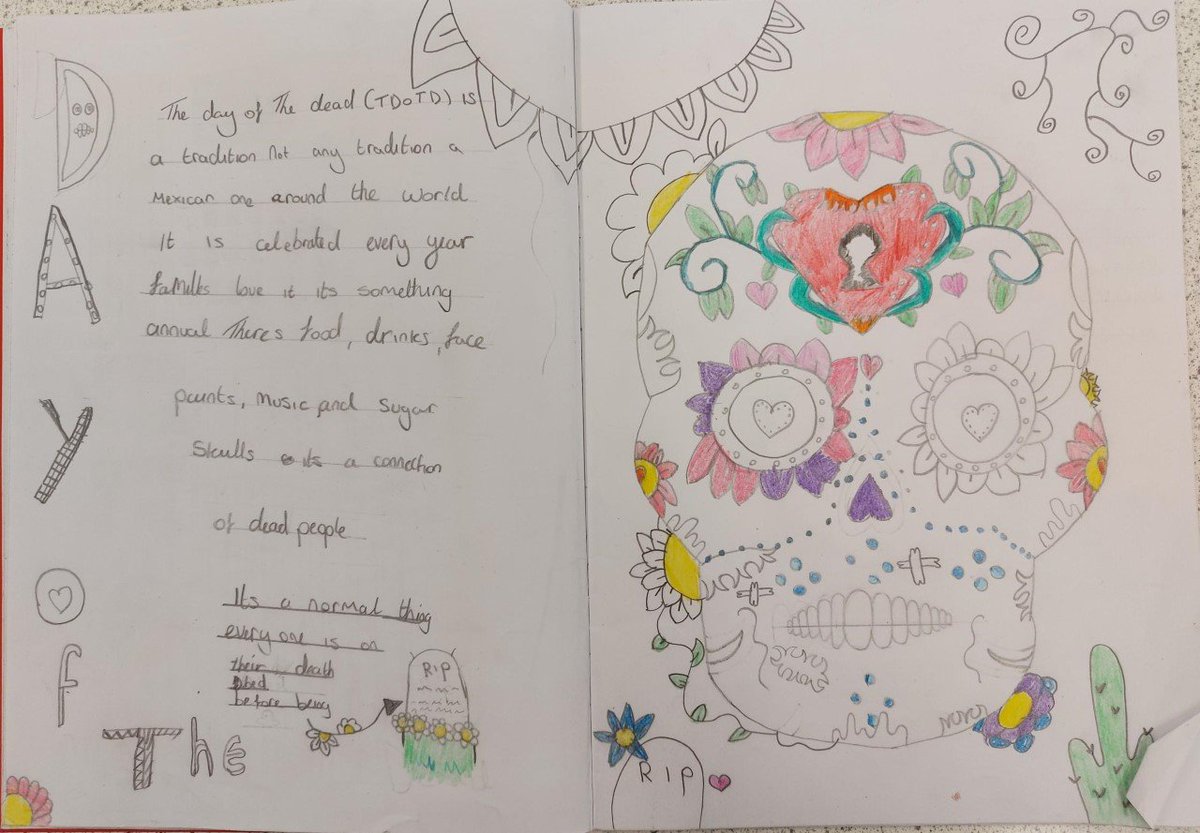 DAY
Of
The
The day of The dead (TDoTD) is
a tradition not any tradition a
Mexican one around the world
It is celebrated every year
families love it its something
annual Theres food, drinks, face
paints, Music and Sugar
Skulls its a connection
of dead people
Its a normal thing
everyone is on
their death
bed
before being
RIP
RIP